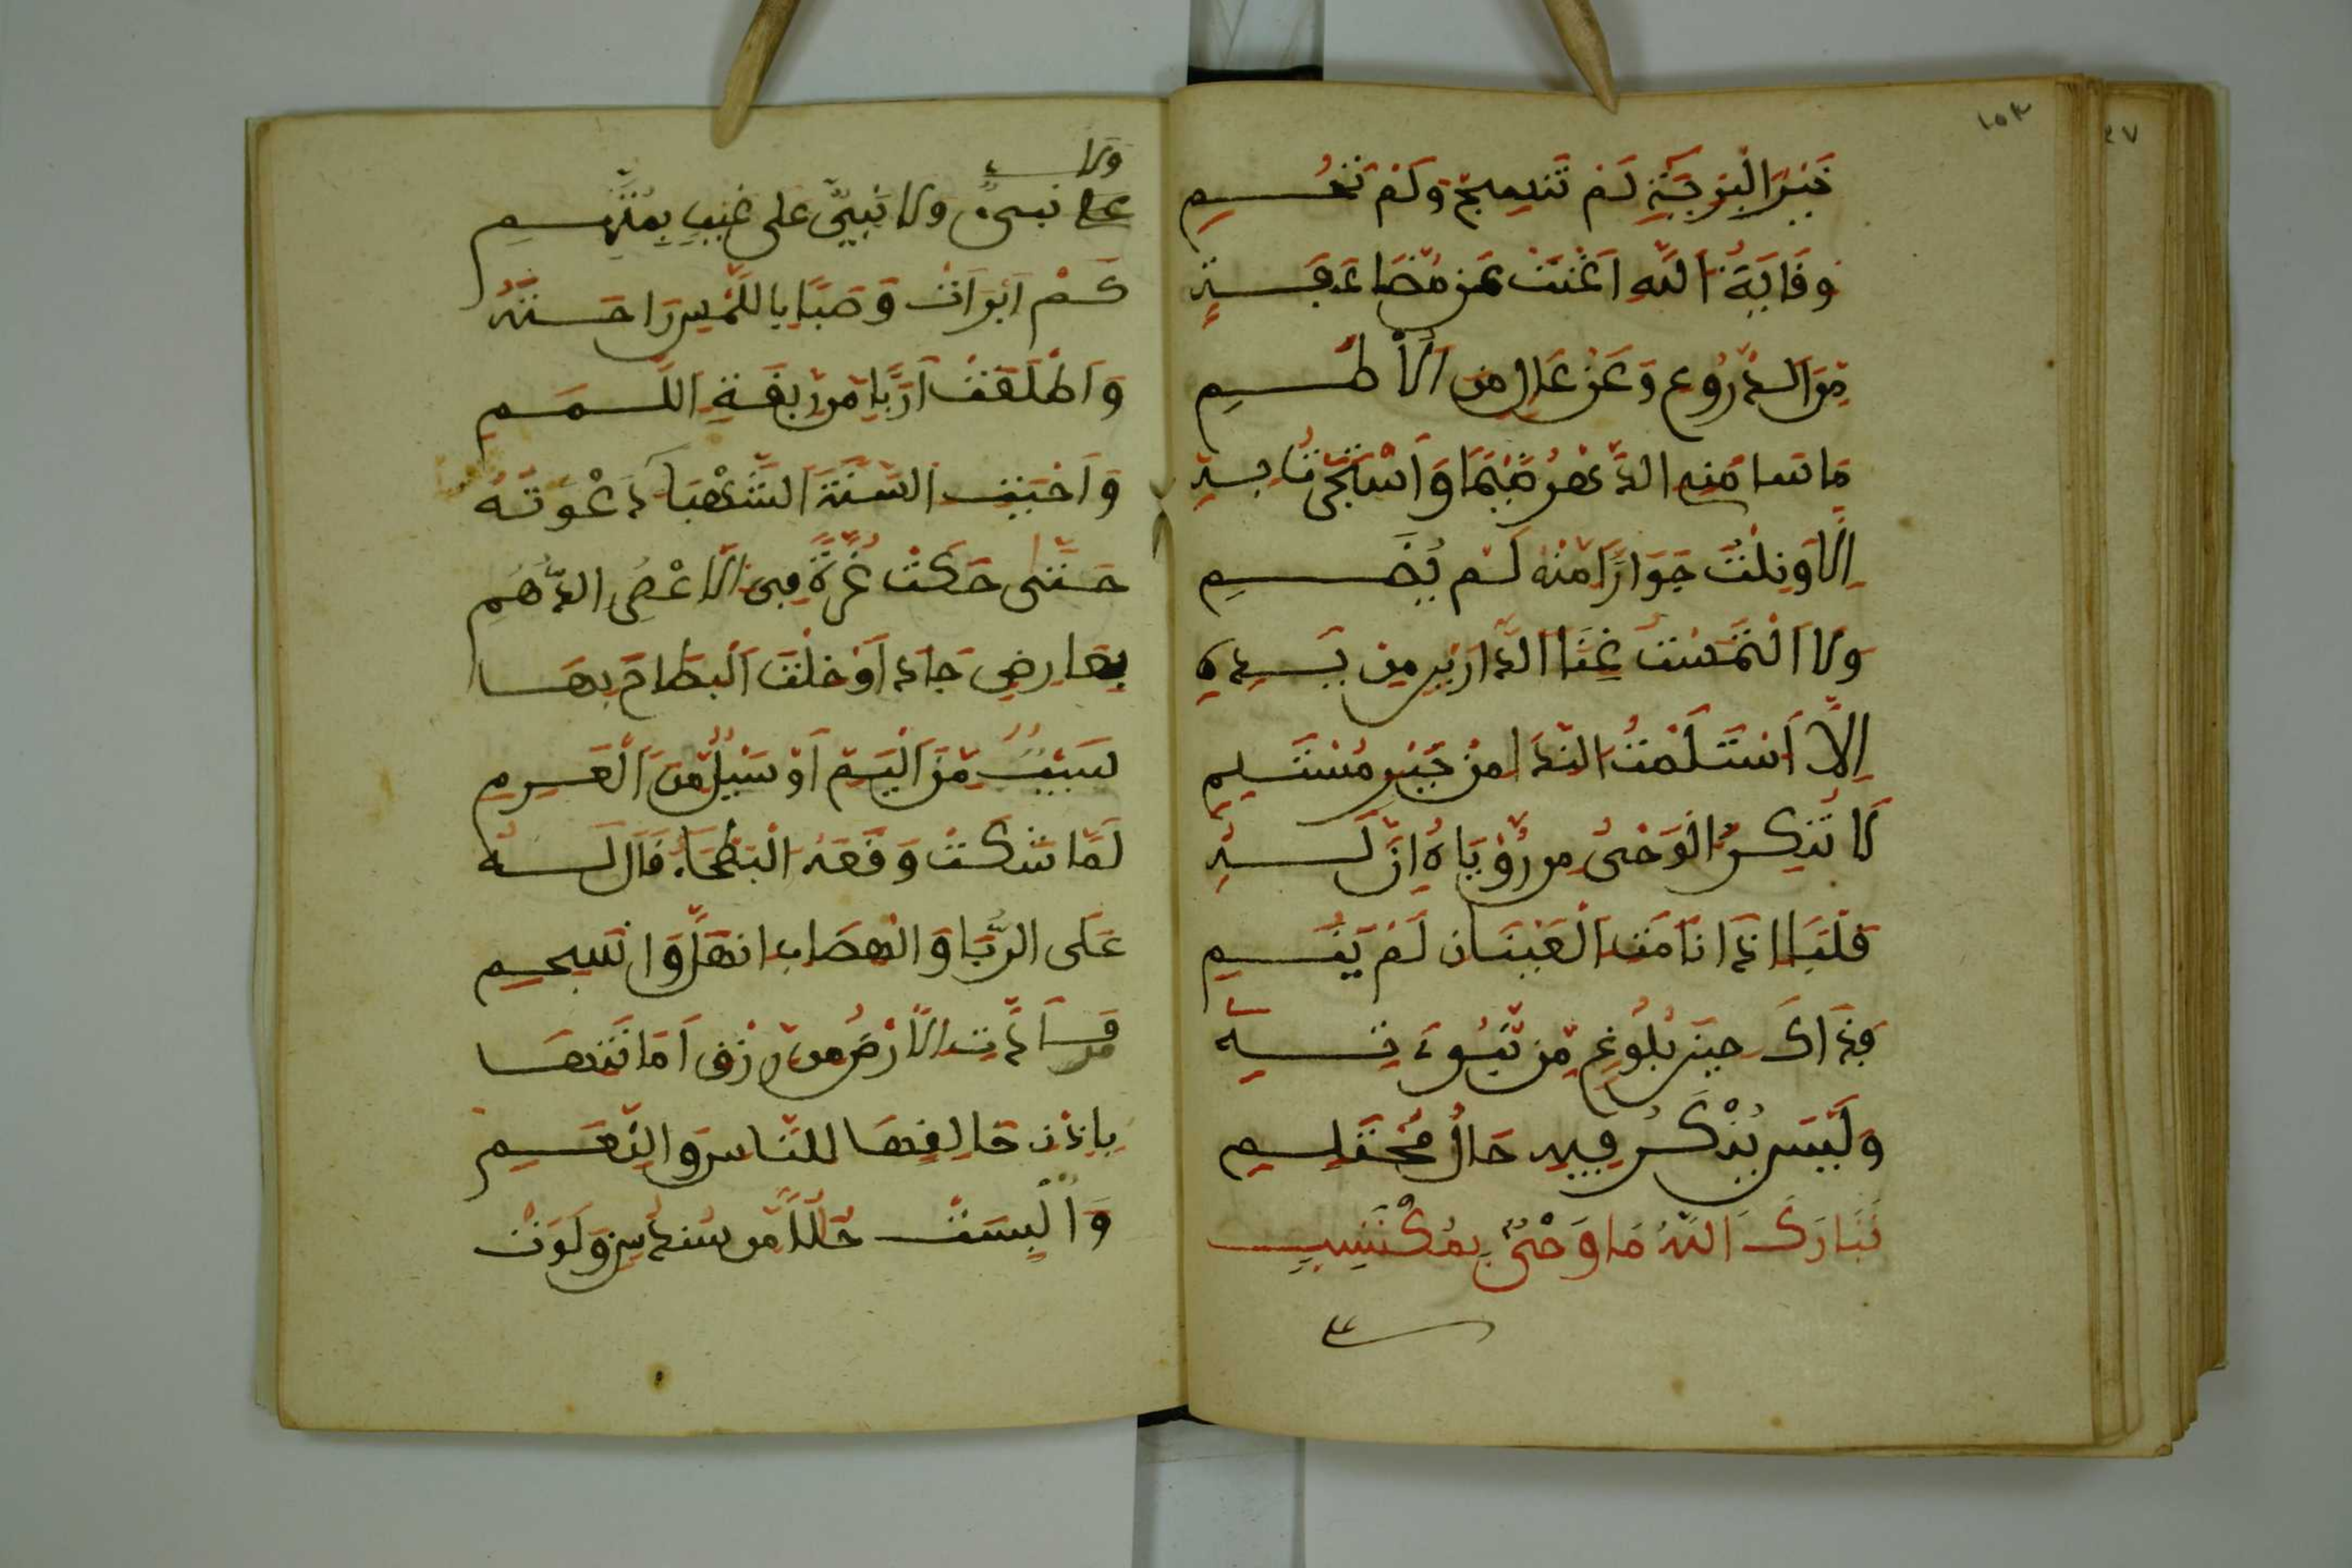 ١٥٣
٤٧
خَيْرَ الْبَرِيَّةِ لَمْ تَنْسِجْ وَلَمْ تَحُمِ
وِقَايَةُ اللَّهِ اَغْنَتْ عَنْ مُّضَاعَفَةٍ
مِّنَ الدُّرُوعِ وَعَنْ عَالٍ مِنَ الْأُطُمِ
مَا سَامَنِى الدَّهْرُ ضَيْمًا وَاسْتَجَرْتُ بِهِ
اِلَّا وَنِلْتُ جَوَارًا مِّنْهُ لَمْ يُضَمِ
وَلَا الْتَمَسْتُ غِنَا الدَّارَيْنِ مِنْ يَدِهِ
اِلَّا اَسْتَلَمْتُ النَّدَا مِنْ خَيْرِ مُسْتَلَمِ
لَا تُنْكِرُ الْوَحْىَ مِن رُّؤْيَاهُ اِنَّ لَهُ
قَلْبًا اِذَا نَامَتِ الْعَيْنَانِ لَمْ يَنَمِ
فَذَاكَ حِينَ بُلُوغٍ مِّن نُّبُوءَتِهِ
وَلَيْسَ يُنْكَرُ فِيهِ حَالُ مُحْتَلِمِ
تَبَارَكَ اللَّهُ مَا وَحْىٌ بِمُكْتَسِبٍ
وَلَا
نَبِىٌّ وَلَا نَبِىٌّ عَلَى غَيْبٍ بِمُتَّهَمِ
كَمْ اَبْرَاَتْ وَصَبًا بِاللَّمْسِ رَاحَتُهُ
وَاَطْلَقَتْ اَرِبًا مِّن رِّبْقَةِ اللَّمَمِ
وَاَحْيَتِ السَّنَةَ الشَّهْبَاءَ دَعْوَتُهُ
حَتَّى حَكَتْ غُرَّةً فِى الْأَعْصُرِ الدُّهُمِ
بِعَارِضٍ جَادَ اَوْ خِلْتَ الْبِطَاحَ بِهَا
سَيْبٌ مِّنَ الْيَمِّ اَوْ سَيْلٌ مِّنَ الْعَرِمِ
لَمَّا شَكَتْ وَقْعَهُ الْبَطْحَاءُ قَالَ لَهُ
عَلَى الرُّبَا وَالْهِضَابِ انْهَلَّ وَانْسَجِمِ
فَأَدَّتِ الْأَرْضُ مِن رِّزْقٍ اَمَانَتَهَا
بِإِذْنِ خَالِقِهَا لِلنَّاسِ وَالنَّعَمِ
وَالْبِسَتْ حُلَلًا مِّن سُنْدُسٍ وَلَوَتْ